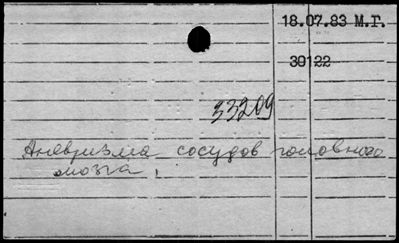 18.07.83 М.Г.
30122
33209
Аневризма сосудов головного
мозга.